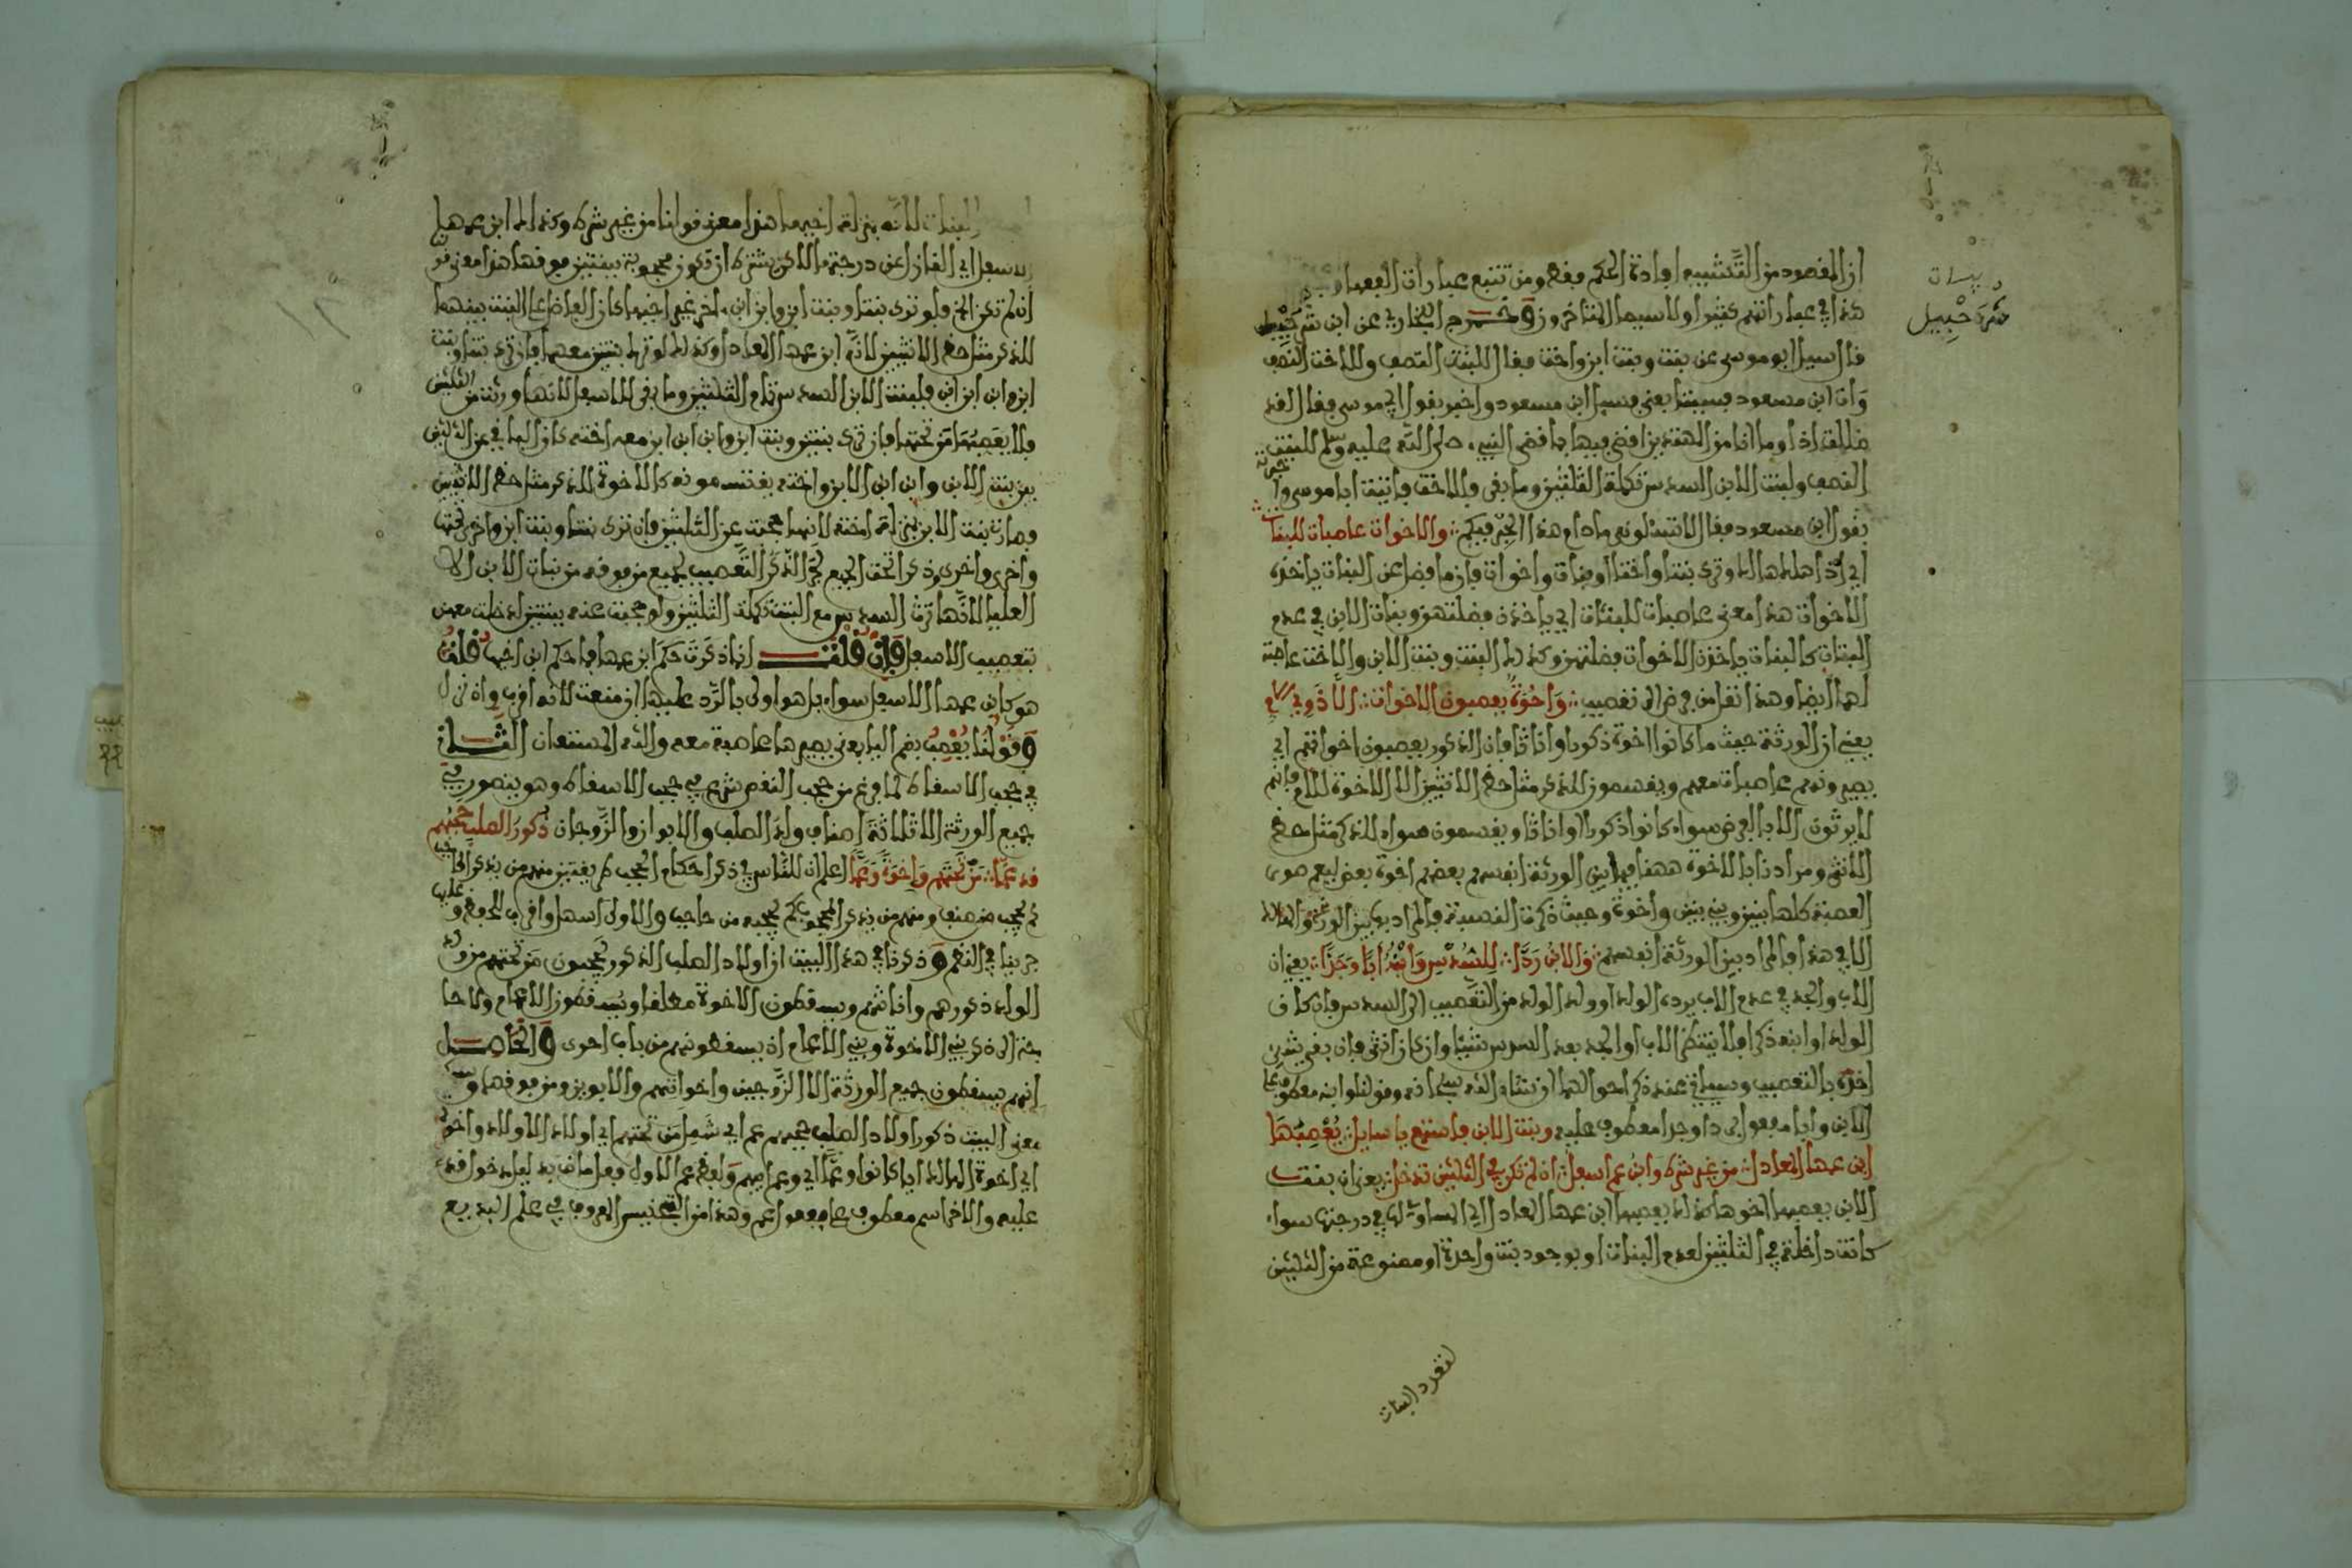 ان المقصود من التشبيه افادة الحكم فقط ومن تتبع عبارات الفقهاء
هذا في عباراتهم كثيرا ولا سيما المتاخرون وخرج البخاري عن ابن شرحبيل
شرحبيل
قال سيل ابو موسى عن بنت وبنت ابن واخت فقال للبنت النصف وللاخت النصف
وات ابن مسعود فسيتابعني فسيل ابن مسعود واخبر بقول ابي موسى فقال لقد
ضللت اذا وما انا من المهتدين اقضي فيها بما قضى النبيء صلى الله عليه وسلم للبنت
النصف ولبنت الابن السدس تكملة الثلثين وما بقي فللاخت فاتينا ابا موسى واخبرته
بقول ابن مسعود فقال لا تسئلوني ما دام هذا الحبر فيكم والاخوات عاصبات للبنات
اي اذا هلك هالك وترك بنتا واختا او بنات واخوات فان ما فضل عن البنات ياخذه
الاخوات هذا معنى عاصبات للبنات اي ياخذن فضلتهن وبنات الابن في عدم
البنات كالبنات ياخذن الاخوات فضلتهن وكذلك البنت وبنت الابن والاخت عاصبة
لها ايضا وهذا انتقل من فرض الى تعصيب واخوة يعصبون الاخوات
يعني ان الورثة حيث ما كانوا اخوة ذكورا واناثا فان الذكور يعصبون اخواتهم اي
يصيرونهم عاصبات معهم ويقسمون للذكر مثل حظ الانثيين الا الاخوة للام فانهم
لا يرثون الا بالفرض سواء كانوا ذكورا او اناثا ويقسمون سواء للذكر مثل حظ
الانثى ومرادنا بالاخوة ههنا فيما بين الورثة انفسهم بعضهم اخوة بعض ليعم هوى
العصبة كلها بنين وبني بنين واخوة وحيث ذكرت القصيدة فالمراد
الا في هذا فالمراد بين الورثة انفسهم والابن ردا للسدس وابنه ابا وجدا يعني ان
الاب والجد في عدم الاب يرده الولد او ولد الولد من التعصيب الى السدس فان كان
الولد او ابنه ذكرا فلا ينتظر الاب او الجد بعد السدس شيئا وان كان انثى فان بقي شيء
اخذه بالتعصيب وسياتي عند ذكر احوالهما ان شاء الله وقولنا وابنه معطوف على
الابن وابا مفعول ردا وجدا معطوف عليه وبنت الابن فاستمع يا سايل يعصبها
ابن عمها المعادل من غير شرك وابن عم اسفل ان لم تكن في الثلثين تدخل يعني ان بنت
الابن يعصبها اخوها كذلك يعصبها ابن عمها المعادل اي المساوي لها في درجتها سواء
كانت داخلة في الثلثين لعدم البنات او بوجود بنت واحدة او ممنوعة من الثلثين
لتعدد البنات
البنات لانه بمنزلة اخيها هذا معنى قولنا من غير شرك وكذلك ابن عمها
الاسفل اي النازل عن درجتها لاكن بشرط ان تكون محجوبة ببنتين فوقها هذا معنى قو
ان لم تكن الخ فلو ترك بنتا وبنت ابن وابن ابن اخر غير اخيها كان الفاضل عن البنت بينهما
للذكر مثل حظ الانثيين لانه ابن عمها المعادل وكذلك لو ترك بنتين معهما فان ترك بنتا وبنت
ابن وابن ابن ابن فلبنت الابن السدس تمام الثلثين وما بقي للاسفل لانها ورثت من الثلثين
فلا يعصبها من تحتها فان ترك بنتين وبنت ابن وابن ابن ابن معه اخته كان الباقي عن الثلثين
بين بنت الابن وابن ابن الابن واخته يقتسمونه كالاخوة للذكر مثل حظ الانثيين
وصارت بنت الابن بمنزلة اخته لانها حجبت عن الثلثين فان ترك بنتا وبنت ابن واخرى تحتها
واخرى واخرى وذكرا تحت الجميع جر الذكر التعصيب لجميع من فوقه من بنات الابن الا
العليا لانها ترث السدس مع البنت تكملة الثلثين ولو حجبت عنه ببنتين لدخلت معهن
بتعصيب الاسفل فان قلت انما ذكرت حكم ابن عمها فما حكم ابن اخيها قلت
هو كابن عمها الاسفل سواء بل هو اولى بالرد عليها ان منعت لانه اقرب وان نزل
وقولنا يعصب بضم اليا يعني يصيرها عاصبة معه والله المستعان الثاني
في حجب الاسقاط لما فرغ من حجب النقص شرع في حجب الاسقاط وهو يتصور في
جميع الورثة الا ثلاثة اصناف ولد الصلب والابوان والزوجان ذكور الصلب حجبهم
قد عما من تحتهم واخوة وعما اعلم ان للناس في ذكر احكام الحجب طريقتين منهم من يذكر الحاجب
ثم يحجب من صنف ومنهم من يذكر المحجوب ثم يحجبه من حاجب والاولى اسهل واقرب للحفظ وعليها
جرينا في النظم وذكرنا في هذا البيت ان اولاد الصلب الذكور يحجبون من تحتهم من ولد
الولد ذكورهم واناثهم ويسقطون الاخوة مطلقا ويسقطون الاعمام ولا حا
جة الى ذكر بني الاخوة وبني الاعمام اذ يسقطونهم من باب احرى والحاصل
انهم يسقطون جميع الورثة الا الزوجين واخواتهم والابوين ومن فوقهما
معنى البيت ذكور اولاد الصلب حجبهم عم اي شمل من تحتهم اي اولاد الاولاد واخوة
اي اخوة الهالك ايا كانوا وعما اي وعم ابيهم ولفظ عم الاول فعل ماض
عليه والاخر اسم معطوف على مفعول عم وهذا من التجنيس المعروف في علم البديع